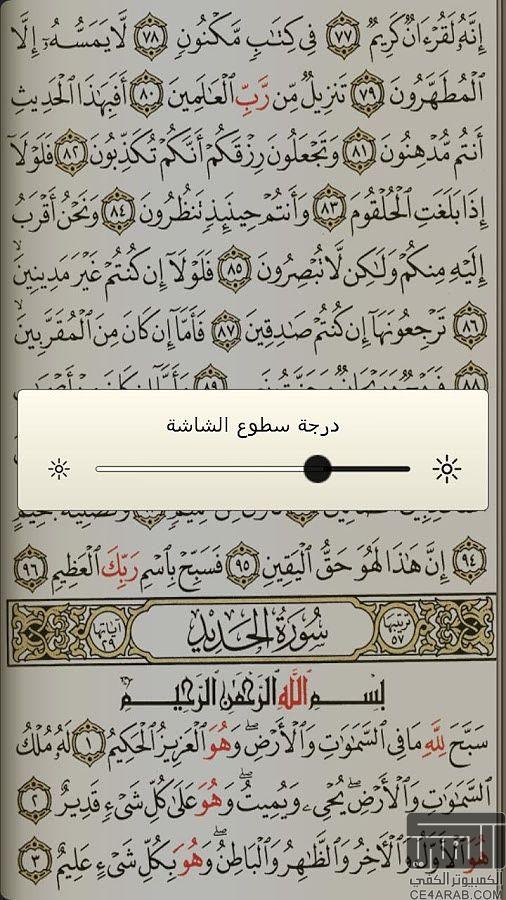 إِنَّهُۥ لَقُرْءَانٌ كَرِيمٌ ٧٧ فِى كِتَٰبٍ مَّكْنُونٍ ٧٨ لَّا يَمَسُّهُۥٓ إِلَّا
ٱلْمُطَهَّرُونَ ٧٩ تَنزِيلٌ مِّن رَّبِّ ٱلْعَٰلَمِينَ ٨٠ أَفَبِهَٰذَا ٱلْحَدِيثِ
أَنتُم مُّدْهِنُونَ ٨١ وَتَجْعَلُونَ رِزْقَكُمْ أَنَّكُمْ تُكَذِّبُونَ ٨٢ فَلَوْلَآ
إِذَا بَلَغَتِ ٱلْحُلْقُومَ ٨٣ وَأَنتُمْ حِينَئِذٍ تَنظُرُونَ ٨٤ وَنَحْنُ أَقْرَبُ
إِلَيْهِ مِنكُمْ وَلَٰكِن لَّا تُبْصِرُونَ ٨٥ فَلَوْلَآ إِن كُنتُمْ غَيْرَ مَدِينِينَ
٨٦ تَرْجِعُونَهَآ إِن كُنتُمْ صَٰدِقِينَ ٨٧ فَأَمَّآ إِن كَانَ مِنَ ٱلْمُقَرَّبِينَ
٨٨
درجة سطوع الشاشة
٩٤ إِنَّ هَٰذَا لَهُوَ حَقُّ ٱلْيَقِينِ ٩٥ فَسَبِّحْ بِٱسْمِ رَبِّكَ ٱلْعَظِيمِ ٩٦
ترتيبها ٥٧ سُورَةُ الحَدِيدِ آياتها ٢٩
بِسْمِ ٱللَّهِ ٱلرَّحْمَٰنِ ٱلرَّحِيمِ
سَبَّحَ لِلَّهِ مَا فِى ٱلسَّمَٰوَٰتِ وَٱلْأَرْضِ ۖ وَهُوَ ٱلْعَزِيزُ ٱلْحَكِيمُ ١ لَهُۥ مُلْكُ
ٱلسَّمَٰوَٰتِ وَٱلْأَرْضِ ۖ يُحْىِۦ وَيُمِيتُ ۖ وَهُوَ عَلَىٰ كُلِّ شَىْءٍ قَدِيرٌ ٢
هُوَ ٱلْأَوَّلُ وَٱلْءَاخِرُ وَٱلظَّٰهِرُ وَٱلْبَاطِنُ ۖ وَهُوَ بِكُلِّ شَىْءٍ عَلِيمٌ ٣
الكمبيوتر الكفي
CE4ARAB.COM